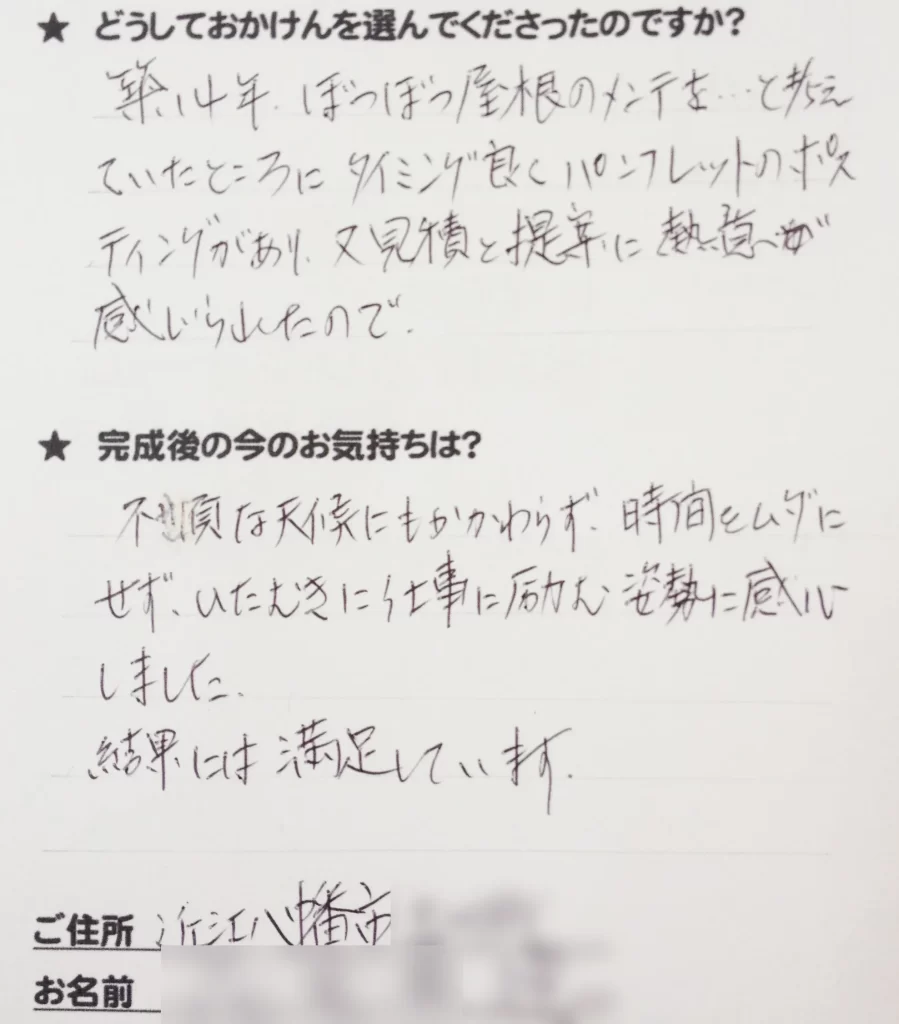 ★ どうしておかけんを選んでくださったのですか?
築14年、ぼつぼつ屋根のメンテを…と考え
ていたところに タイミング良く パンフレットのポス
ティングがあり、又見積と提案に 熱意が
感じられたので。
★ 完成後の今のお気持ちは?
不順な天候にもかかわらず、時間をムダに
せず、ひたむきに仕事に励む 姿勢に感心
しました。
結果には 満足しています。
ご住所 近江八幡市
お名前